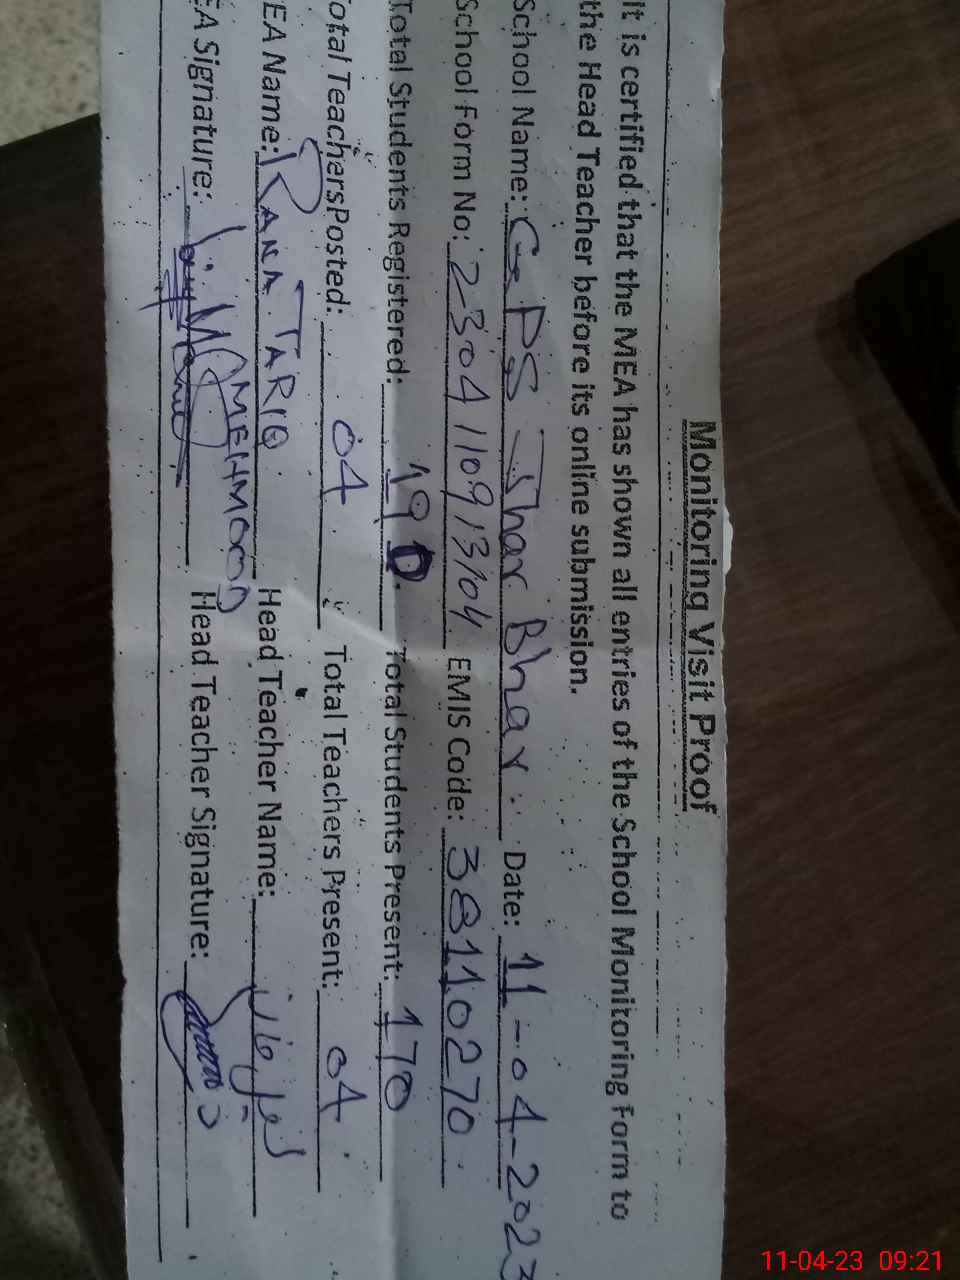 Monitoring Visit Proof
It is certified that the MEA has shown all entries of the School Monitoring Form to
the Head Teacher before its online submission.
School Name: GPS Jhar Bhar. Date: 11-04-2023
School Form No: 2304110913104 EMIS Code: 38110270
Total Students Registered: 190. Total Students Present: 170
Total TeachersPosted: 04 Total Teachers Present: 04
EA Name: RANA TARIQ MEHMOOD Head Teacher Name:
EA Signature: Head Teacher Signature:
11-04-23 09:21